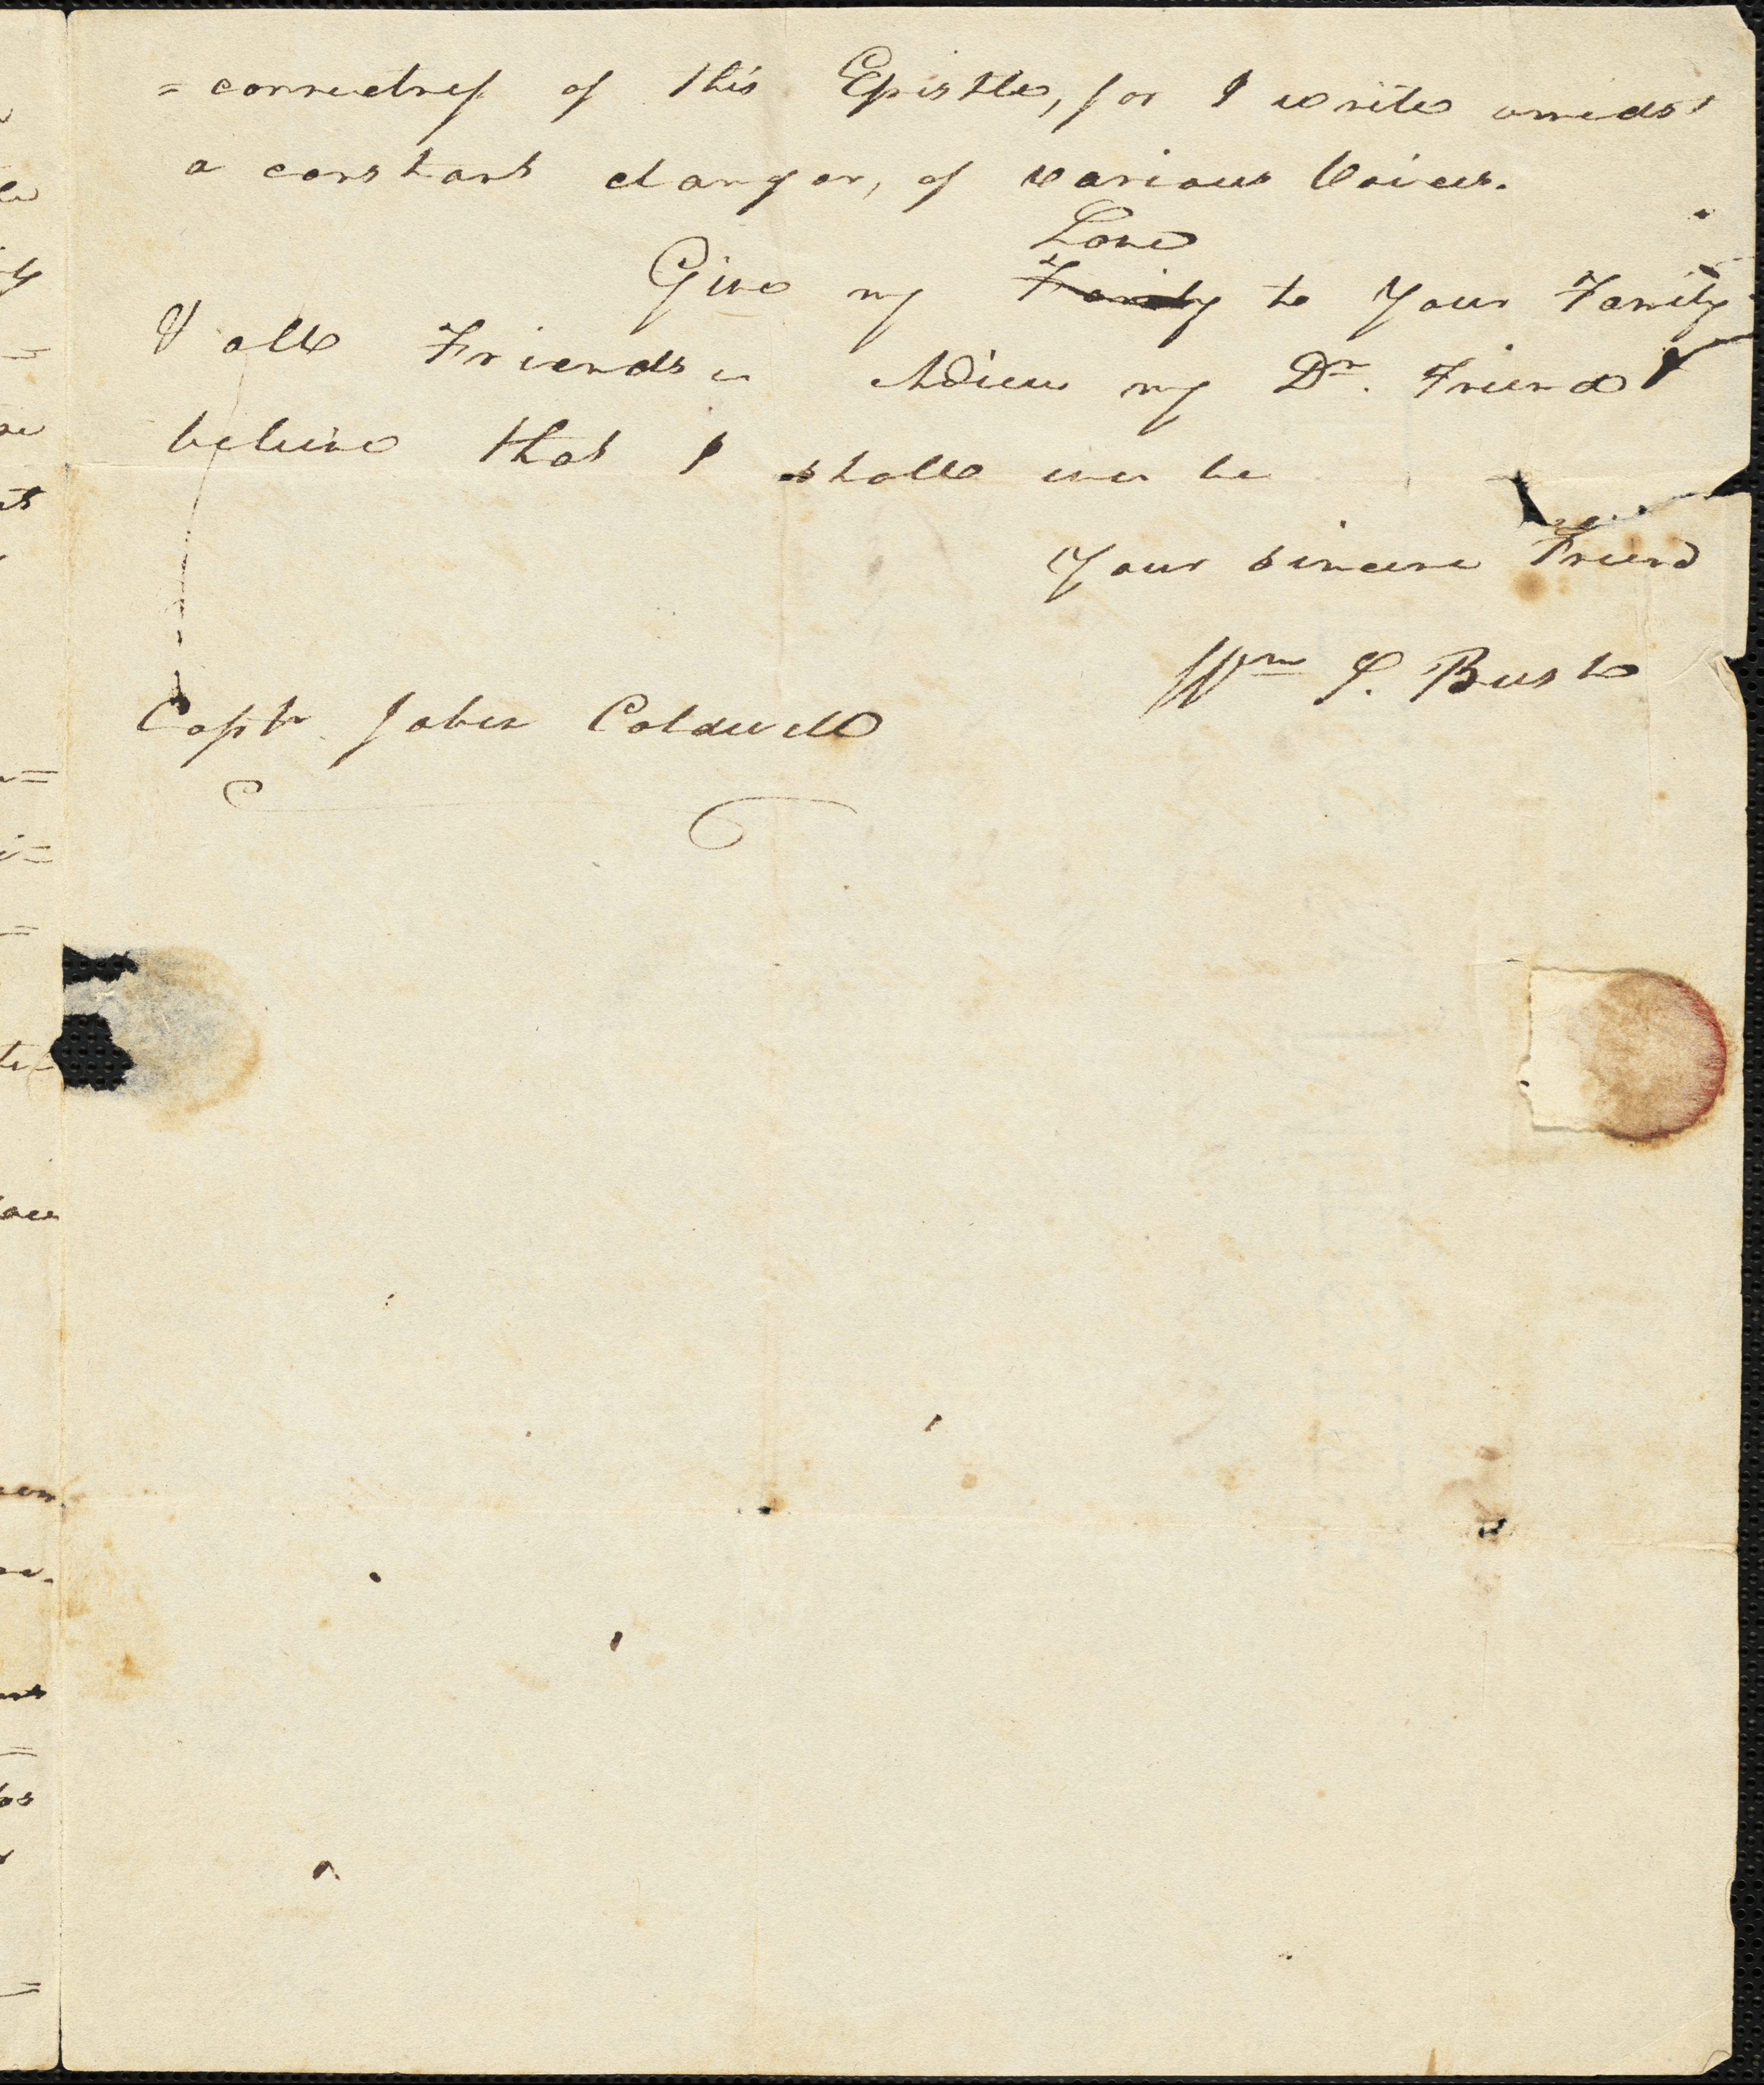 = correctness of this Epistle, for I write amidst
a constant clangor, of various Voices.
Love
Give my Family to Your Family
& all Friends Adieu my Dr. Friend &
believe that I shall ever be
Your sincere Friend
Wm S. Bush
Captn. Jabez Caldwell